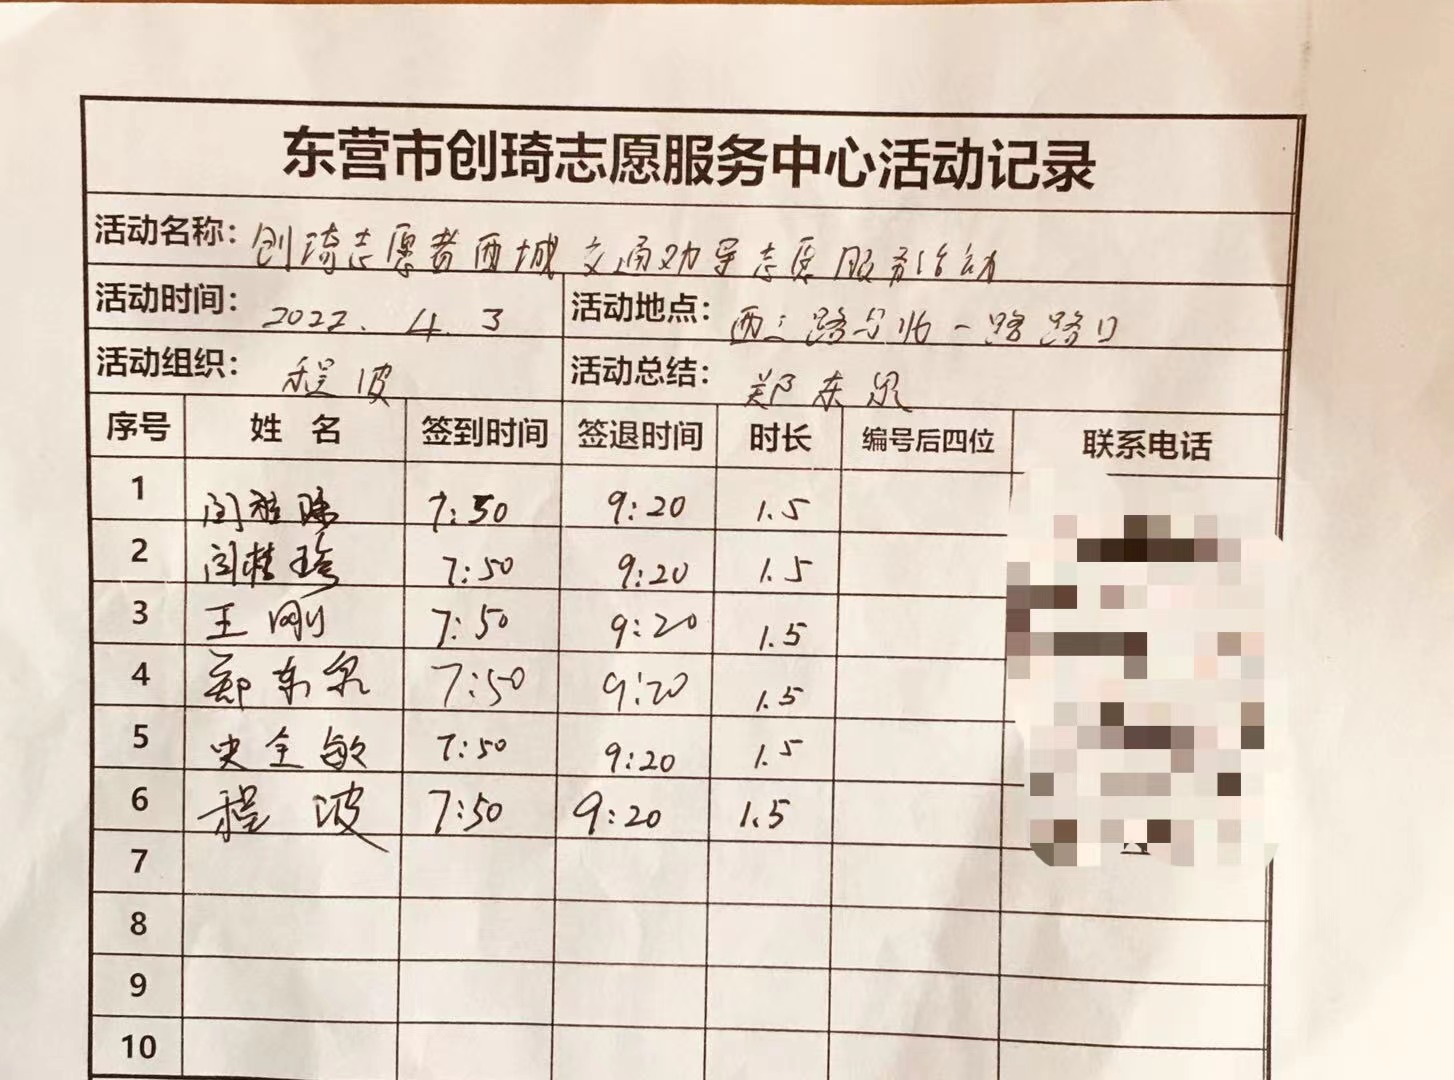 东营市创琦志愿服务中心活动记录
活动名称: 创琦志愿者西城交通劝导志愿服务活动
活动时间: 2022.4.3 活动地点: 西三路与北一路路口
活动组织: 程波 活动总结: 郑东泉
序号 姓名 签到时间 签退时间 时长 编号后四位 联系电话
1 闫雅 7:50 9:20 1.5
2 闫桂珍 7:50 9:20 1.5
3 王刚 7:50 9:20 1.5
4 郑东泉 7:50 9:20 1.5
5 史全敏 7:50 9:20 1.5
6 程波 7:50 9:20 1.5
7
8
9
10